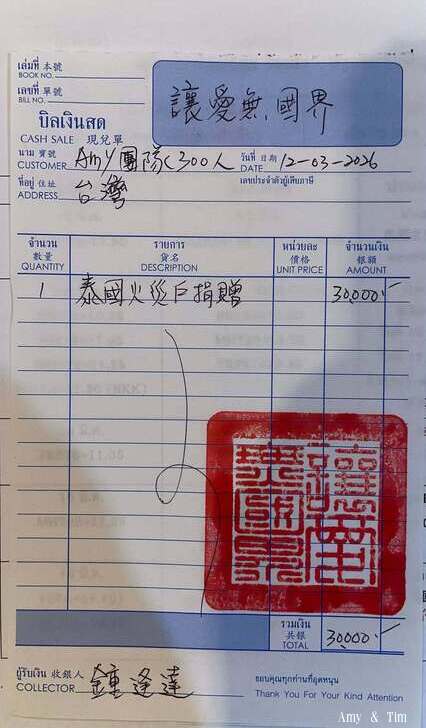 เล่มที่ 本號
BOOK NO.
เลขที่ 單號
BILL NO.
讓愛無國界
บิลเงินสด
CASH SALE 現兌單
นาม 寶號
CUSTOMER Amy團隊<300人
วันที่ 日期
DATE 12-03-2026
ที่อยู่ 住址
ADDRESS 台灣
เลขประจำตัวผู้เสียภาษี
จำนวน รายการ หน่วยละ จำนวนเงิน
數量 貨名 價格 銀額
QUANTITY DESCRIPTION UNIT PRICE AMOUNT
1 泰國火災戶捐贈 30,000.-
รวมเงิน
共銀
TOTAL 30,000.-
ผู้รับเงิน 收銀人
COLLECTOR 鍾逢達
ขอบคุณทุกท่านที่อุดหนุน
Thank You For Your Kind Attention
Amy & Tim